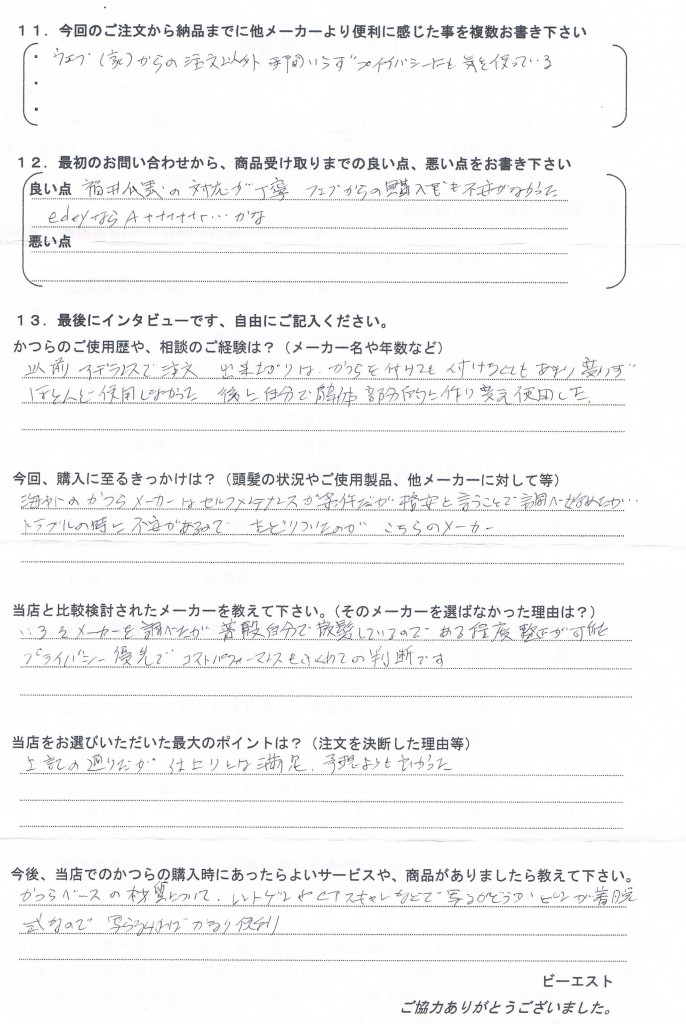 １１．今回のご注文から納品までに他メーカーより便利に感じた事を複数お書き下さい
・ウェブ（家）からの注文以外 手間いらず プライバシーにも 気を使っている
・
・
１２．最初のお問い合わせから、商品受け取りまでの良い点、悪い点をお書き下さい
良い点 の対応が丁寧 ウェブからの購入でも不安がなかった
ならA++++++…かな
悪い点
１３．最後にインタビューです、自由にご記入ください。
かつらのご使用歴や、相談のご経験は？（メーカー名や年数など）
以前 アデランスで注文 出来上がりは、かつらを付けても 付けなくても あまり変わらず
ほとんど使用しなかった 後に自分で解体 部分的に作り変え使用した。
今回、購入に至るきっかけは？（頭髪の状況やご使用製品、他メーカーに対して等）
海外のかつらメーカーはセルフメンテナンスが条件だが 格安と言うことで調べ始めたが…
トラブルの時に不安があるので たどりついたのが こちらのメーカー
当店と比較検討されたメーカーを教えて下さい。（そのメーカーを選ばなかった理由は？）
いろんなメーカーを調べたが 普段自分で散髪しているので ある程度 整正が可能
プライバシー優先で コストパフォーマンスもふくめての判断です
当店をお選びいただいた最大のポイントは？（注文を決断した理由等）
上記の通りだが 仕上りには満足、予想よりも良かった
今後、当店でのかつらの購入時にあったらよいサービスや、商品がありましたら教えて下さい。
かつらベースの材質について、レントゲンやCTスキャンなどで写るかどうか ピンが着脱
式なので 写らなければ かなり便利
ビーエスト
ご協力ありがとうございました。